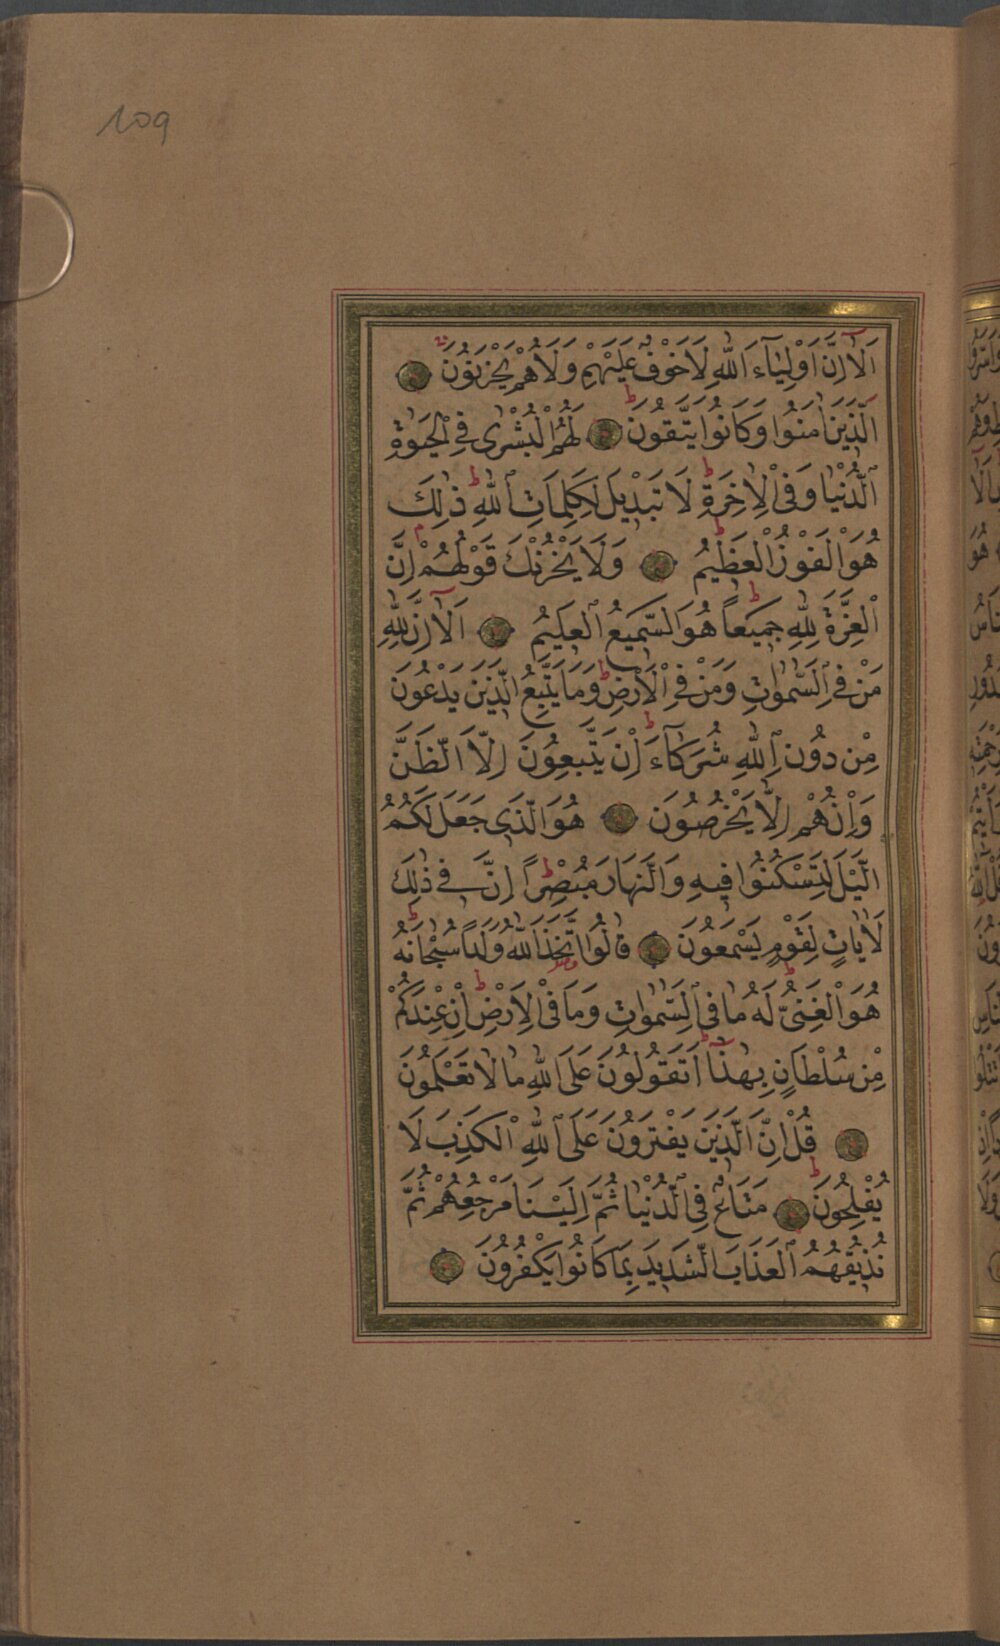 109
اَلَٓا اِنَّ اَوْلِيَٓاءَ اللّٰهِ لَا خَوْفٌ عَلَيْهِمْ وَلَا هُمْ يَحْزَنُونَ
اَلَّذٖينَ اٰمَنُوا وَكَانُوا يَتَّقُونَ لَهُمُ الْبُشْرٰى فِي الْحَيٰوةِ
الدُّنْيَا وَفِي الْاٰخِرَةِ لَا تَبْدٖيلَ لِكَلِمَاتِ اللّٰهِ ذٰلِكَ
هُوَ الْفَوْزُ الْعَظٖيمُ وَلَا يَحْزُنْكَ قَوْلُهُمْ اِنَّ
الْعِزَّةَ لِلّٰهِ جَمٖيعاً هُوَ السَّمٖيعُ الْعَلٖيمُ اَلَٓا اِنَّ لِلّٰهِ
مَنْ فِي السَّمٰوَاتِ وَمَنْ فِي الْاَرْضِ وَمَا يَتَّبِعُ الَّذٖينَ يَدْعُونَ
مِنْ دُونِ اللّٰهِ شُرَكَٓاءَ اِنْ يَتَّبِعُونَ اِلَّا الظَّنَّ
وَاِنْ هُمْ اِلَّا يَخْرُصُونَ هُوَ الَّذٖى جَعَلَ لَكُمُ
الَّيْلَ لِتَسْكُنُوا فٖيهِ وَالنَّهَارَ مُبْصِراً اِنَّ فٖى ذٰلِكَ
لَاٰيَاتٍ لِقَوْمٍ يَسْمَعُونَ قَالُوا اتَّخَذَ اللّٰهُ وَلَداً سُبْحَانَهُ
هُوَ الْغَنِيُّ لَهُ مَا فِي السَّمٰوَاتِ وَمَا فِي الْاَرْضِ اِنْ عِنْدَكُمْ
مِنْ سُلْطَانٍ بِهٰذَا اَتَقُولُونَ عَلَى اللّٰهِ مَا لَا تَعْلَمُونَ
قُلْ اِنَّ الَّذٖينَ يَفْتَرُونَ عَلَى اللّٰهِ الْكَذِبَ لَا
يُفْلِحُونَ مَتَاعٌ فِي الدُّنْيَا ثُمَّ اِلَيْنَا مَرْجِعُهُمْ ثُمَّ
نُذٖيقُهُمُ الْعَذَابَ الشَّدٖيدَ بِمَا كَانُوا يَكْفُرُونَ